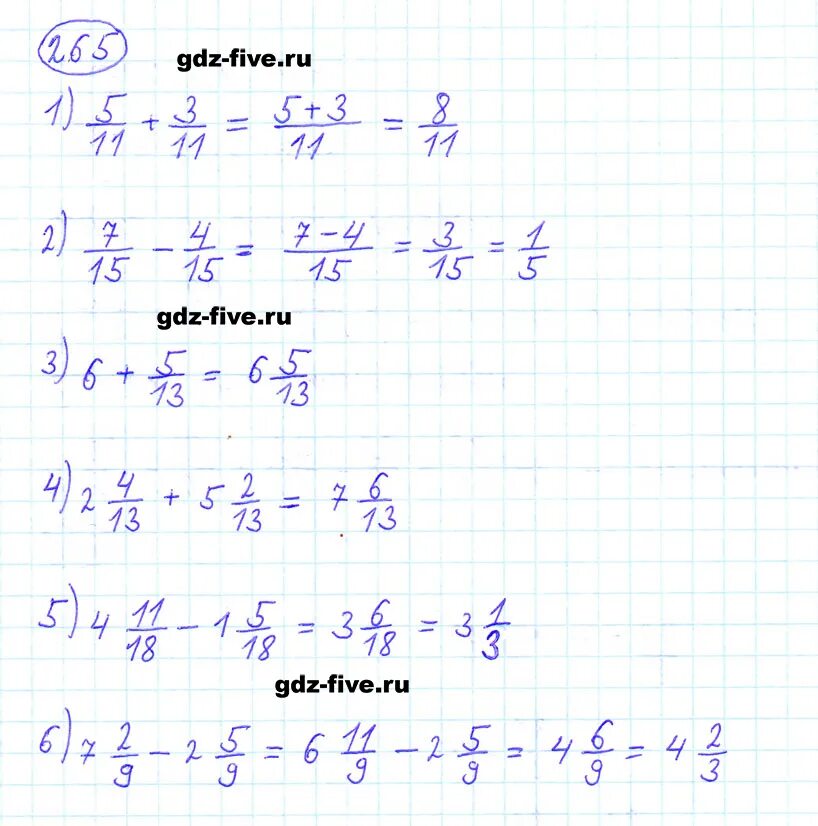 265 gdz-five.ru
1) 5/11 + 3/11 = (5+3)/11 = 8/11
2) 7/15 - 4/15 = (7-4)/15 = 3/15 = 1/5
gdz-five.ru
3) 6 + 5/13 = 6 5/13
4) 2 4/13 + 5 2/13 = 7 6/13
5) 4 11/18 - 1 5/18 = 3 6/18 = 3 1/3
gdz-five.ru
6) 7 2/9 - 2 5/9 = 6 11/9 - 2 5/9 = 4 6/9 = 4 2/3